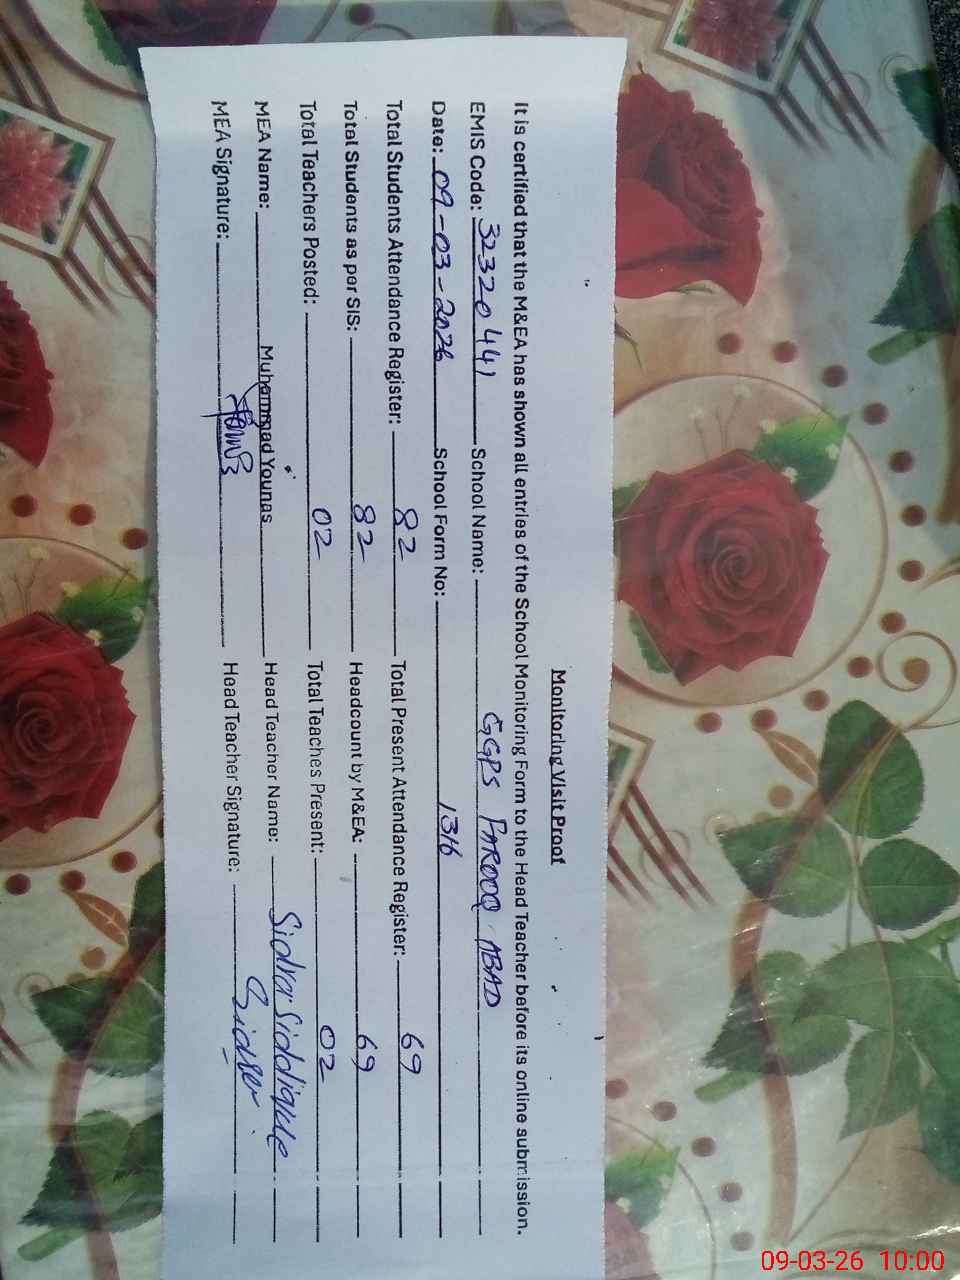 Monitoring Visit Proof
It is certified that the M&EA has shown all entries of the School Monitoring Form to the Head Teacher before its online submission.
EMIS Code: 32320441 School Name: GGPS FAROOQ ABAD
Date: 09-03-2026 School Form No: 1316
Total Students Attendance Register: 82 Total Present Attendance Register: 69
Total Students as per SIS: 82 Headcount by M&EA: 69
Total Teachers Posted: 02 Total Teaches Present: 02
MEA Name: Muhammad Younas Head Teacher Name: Sidra Siddique
MEA Signature: Head Teacher Signature: Sidra
09-03-26 10:00